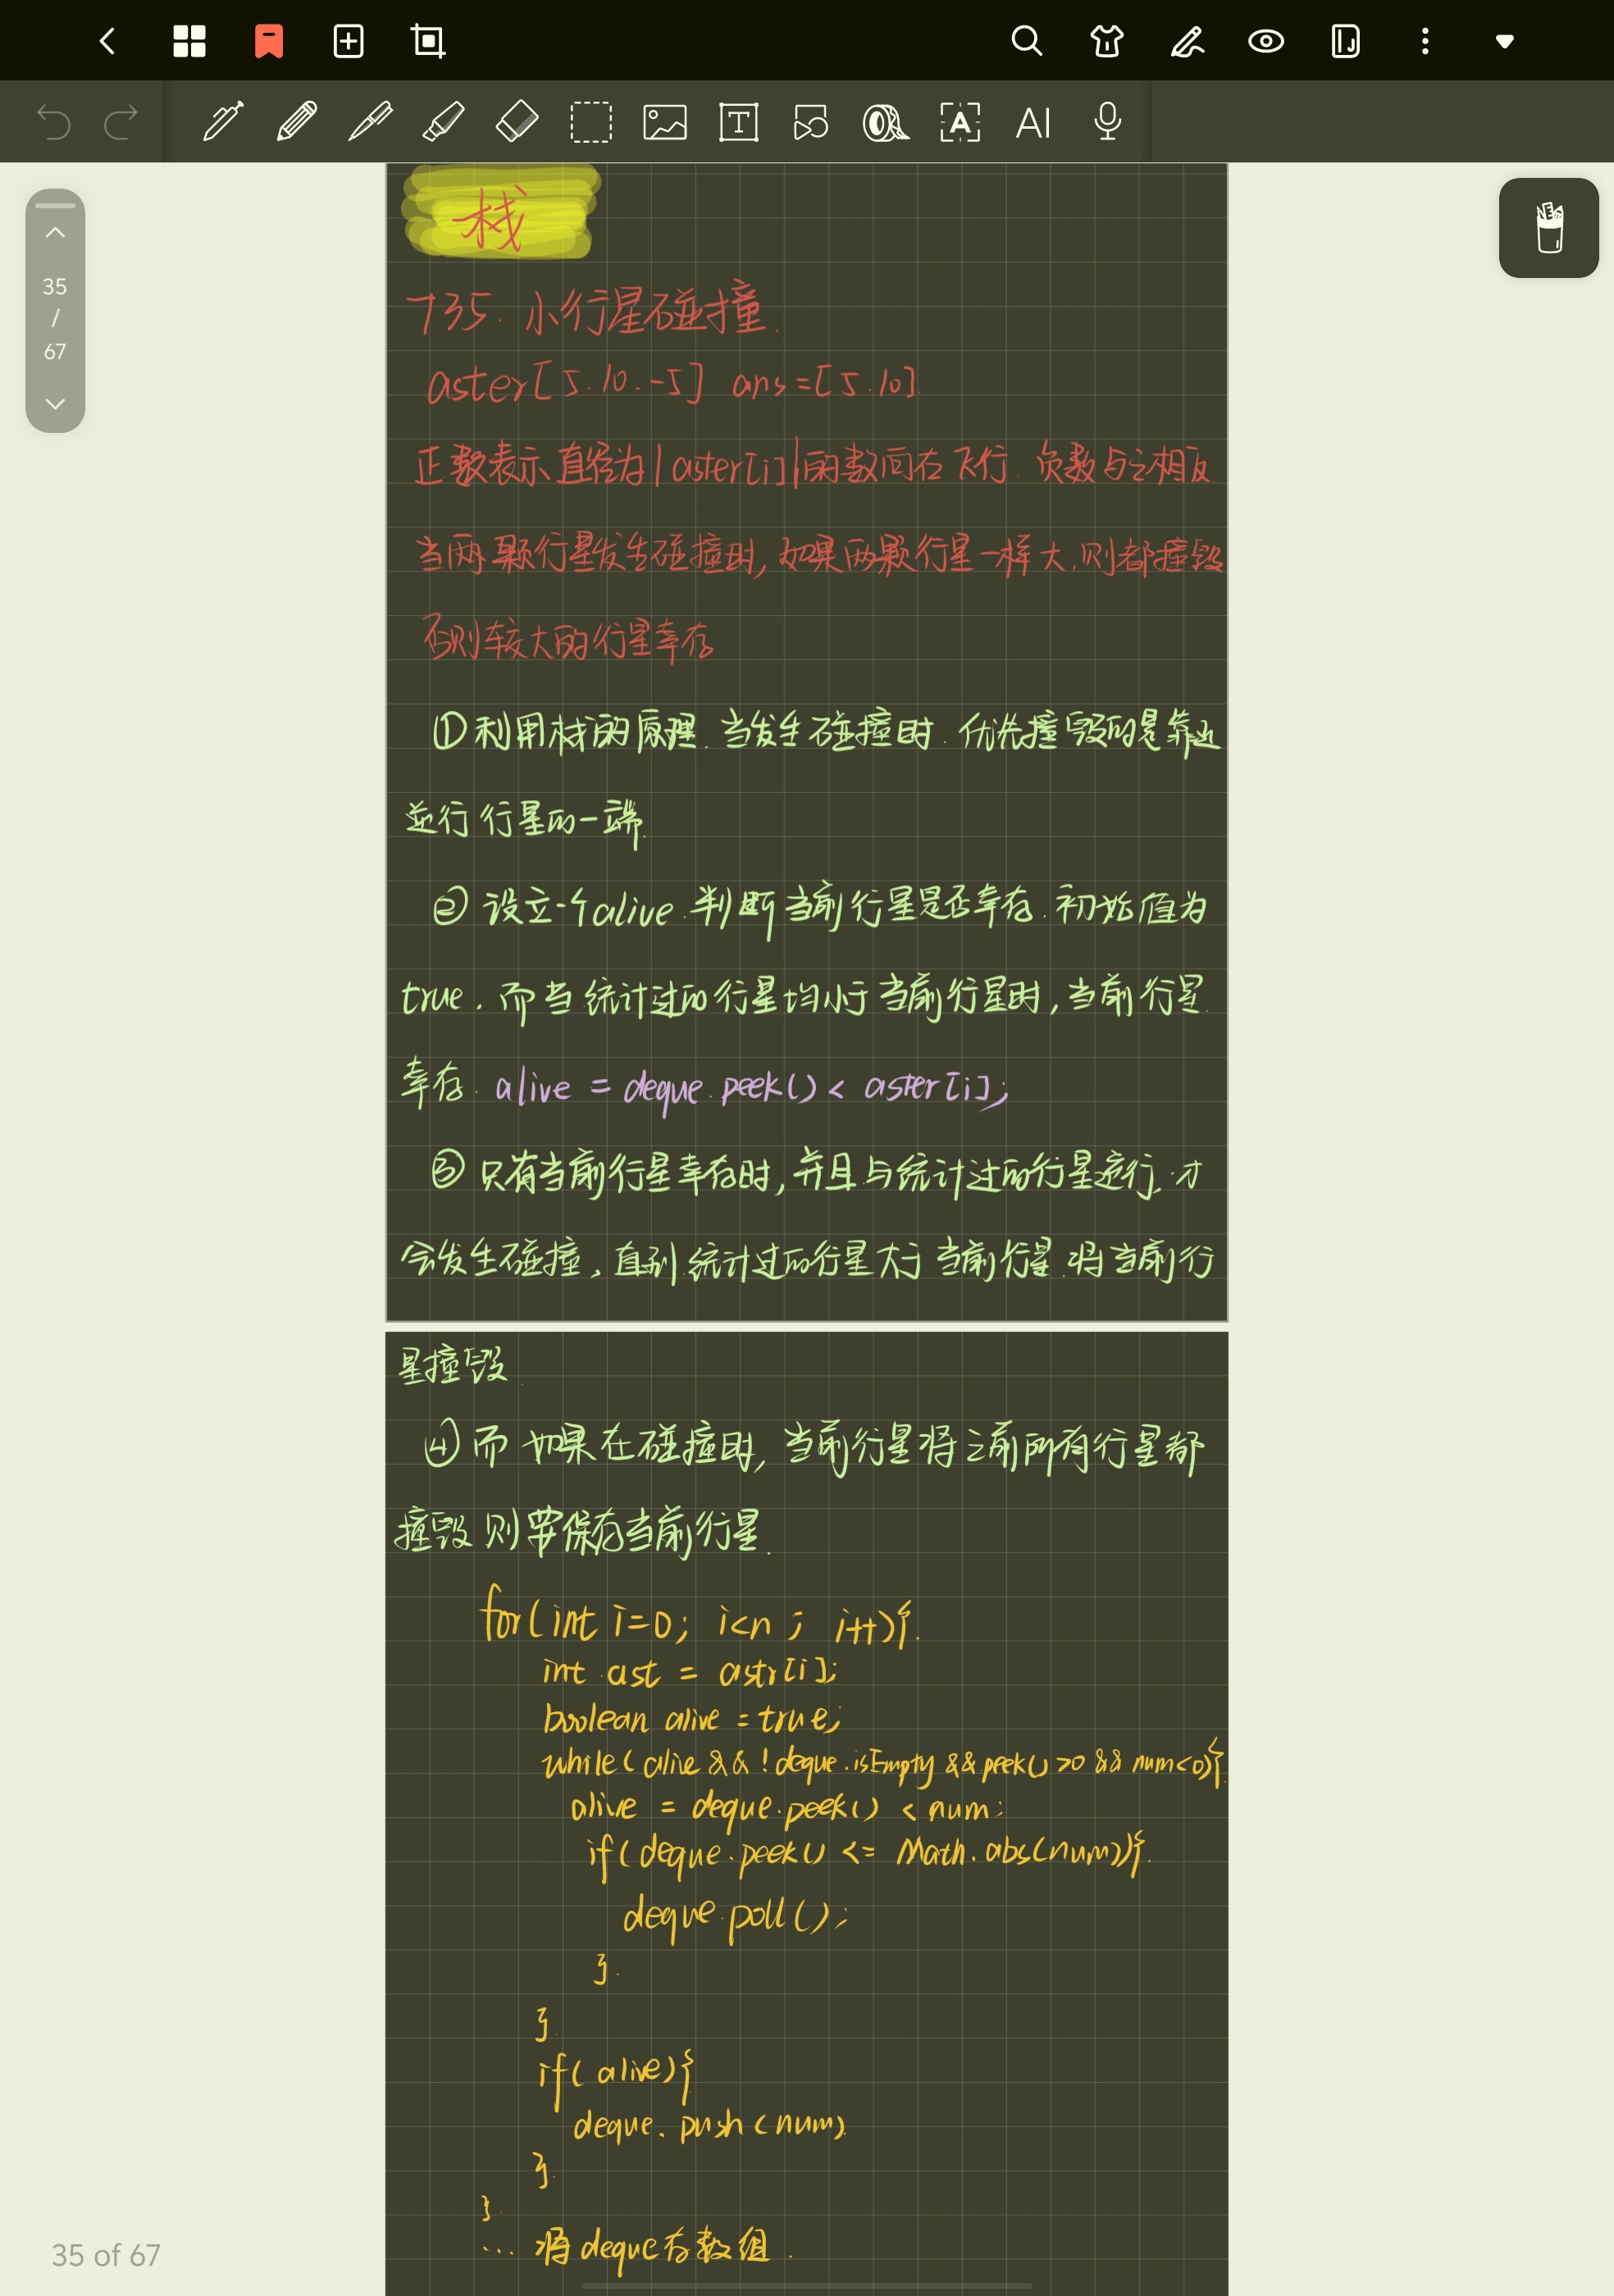 35
/
67
栈
735. 小行星碰撞.
aster[5.10.-5] ans=[5.10].
正数表示直径为|aster[i]|的数向右飞行. 负数与之相反.
当两颗行星发生碰撞时, 如果两颗行星一样大, 则都撞毁
否则较大的行星幸存
①利用栈的原理. 当发生碰撞时. 优先撞毁的是靠近
逆行行星的一端.
② 设立一个alive. 判断当前行星是否幸存. 初始值为
true. 而当统计过的行星均小于当前行星时, 当前行星.
幸存. alive = deque.peek() < aster[i];
③ 只有当前行星幸存时, 并且与统计过的行星逆行. 才
会发生碰撞, 直到统计过的行星大于当前行星. 将当前行
星撞毁.
④ 而如果在碰撞时, 当前行星将之前所有行星都
撞毁则要保存当前行星.
for(int i=0; i<n; i++){.
int ast = astr[i];
boolean alive = true;
while( alive && !deque.isEmpty && peek() >0 && num<0){
alive = deque.peek() < num;
if( deque.peek() <= Math.abs(num)){.
deque.poll();
}.
}.
if( alive){
deque.push(num).
}.
}.
... 将deque存数组.
35 of 67